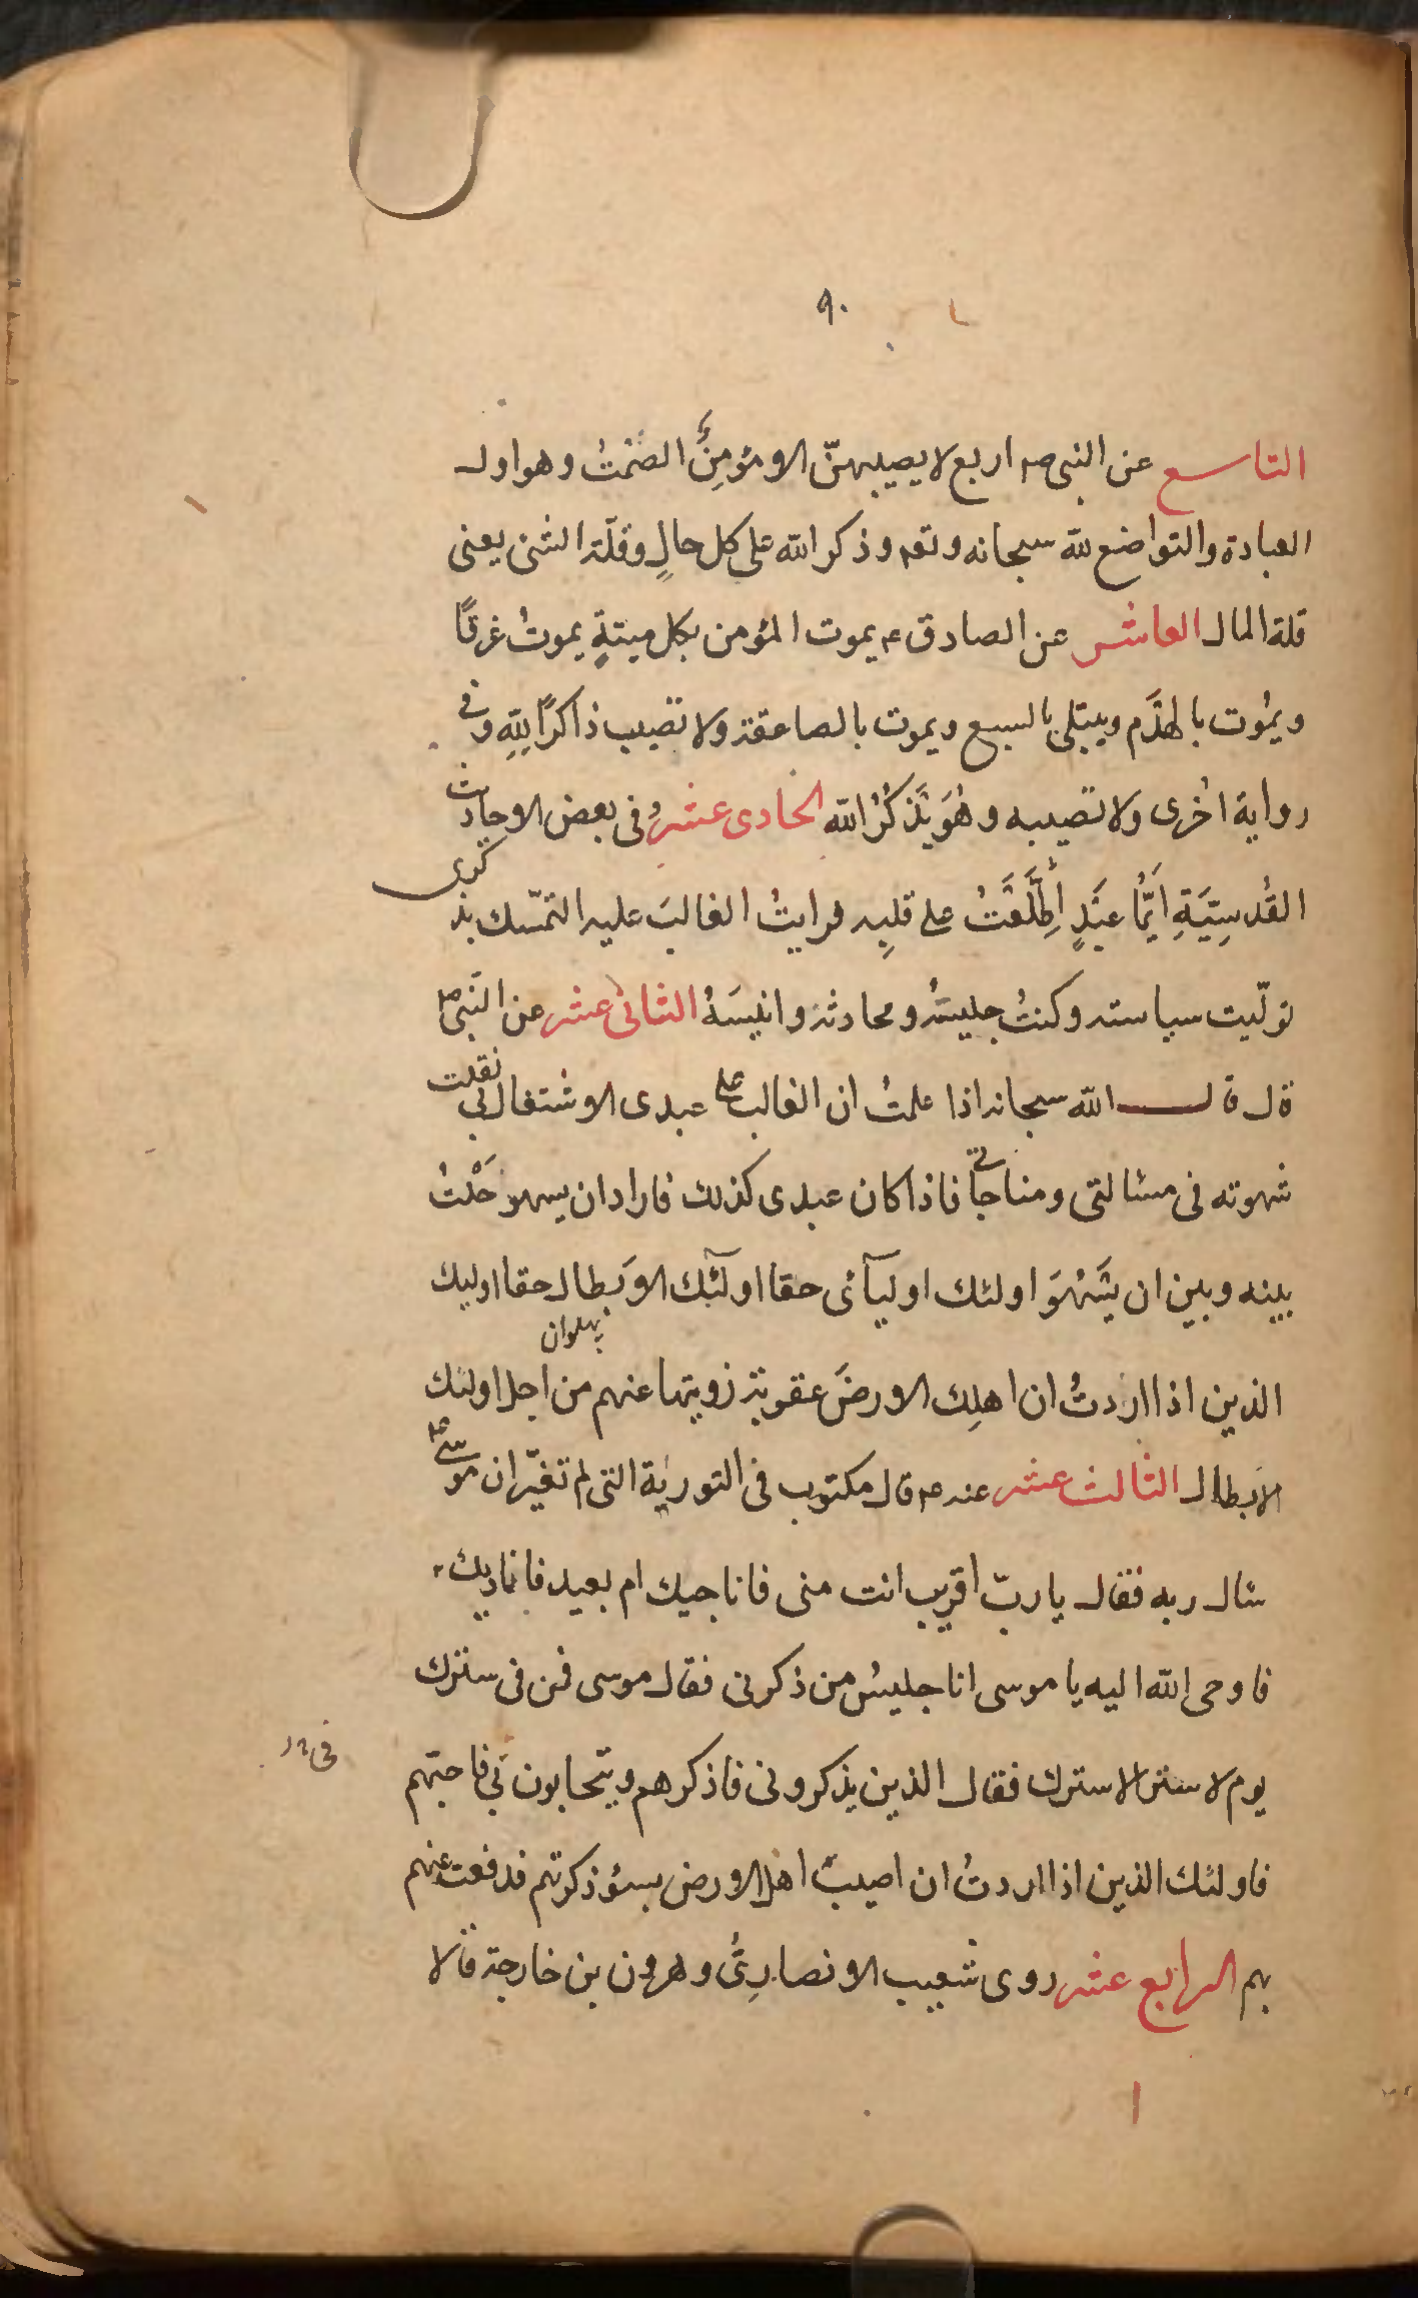 ٩٠
التاسع عن النبی ص اربع لا یصیبهنّ الا مؤمِنٌ الصَمْتُ وهو اول
العبادة والتواضع لله سبحانه وتعم وذکر الله علی کل حالٍ وقلّة الشئ یعنی
قلة المال العاشر عن الصادق ع یموت المؤمن بکل میتةٍ یموتُ غرقًا
ویموُت بالهَدَم ویبتلی بالسبع ویموت بالصاعقة ولا تصیب ذاکرًا لِلّهِ وفی
روایة اخُری ولا تصیبه وهُوَ یَذکُرُ الله الحادی عشر وفی بعض الاحادیث
القُدسِیَّةِ اَیُّما عَبدٍ اِطَّلَعَتُ علی قلبِه فرایتُ الغالبَ علیه التمسّك بذکری
تولّیت سیاسته وکنتُ جلیسَهُ ومحادثه وانیسَهُ الثانی عشر عن النَبی ص
قال قال الله سبحانه اذا علمتُ ان الغالب علی عبدی الاشتغال بی نقلت
شهوته فی مسئالتی ومناجاتی فاذا کان عبدی کذلك فاراد ان یسهو حَلْتُ
بینه وبین ان یَسْهُوَ اولئك اولیآئی حقا اولٓئك الاَبطال حقا اولیك
پهلوان
الذین اذا اردتُ ان اهلِك الارضَ عقوبة زویتها عنهم من اجل اولئك
الابطال الثالث عشر عنه ع قال مکتوب فی التوریٰة التی لم تغیّر ان موسی ع
سئال ربه فقال یا ربّ اقریب انت منی فاناجیك ام بعید فانادیك
فاوحی الله الیه یا موسی انا جلیسُ من ذکرنی فقال موسی فمن فی سترك
یوم لا ستر الا سترك فقال الذین یذکرونی فاذکرهم ویتحابون فی فاحبّهم
فاولئك الذین اذا اردتُ ان اصیبَ اهل الارض بسؤ ذکرتهم فدفعت عنهم
بهم الرابع عشر روی شعیب الانصاریُّ وهرون بن خارجة قالا